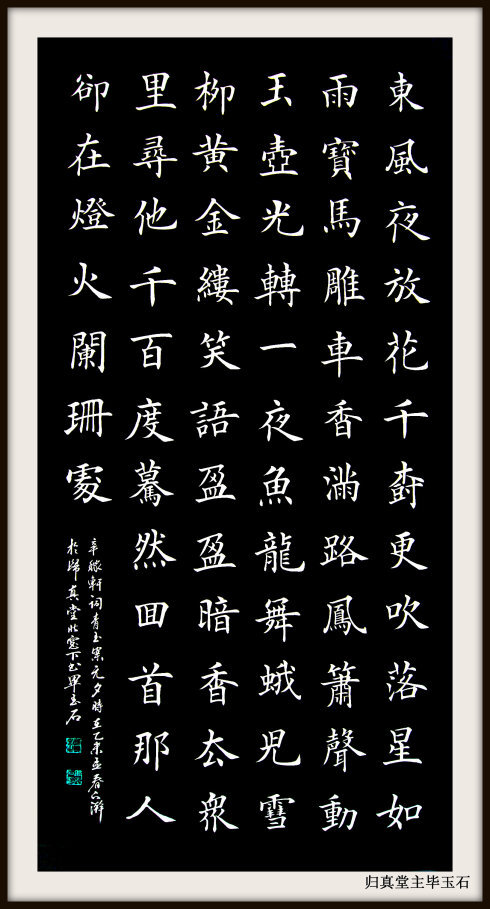 東風夜放花千樹更吹落星如
雨寶馬雕車香滿路鳳簫聲動
玉壺光轉一夜魚龍舞蛾兒雪
柳黄金縷笑語盈盈暗香去衆
里尋他千百度驀然回首那人
卻在燈火闌珊處
辛稼軒詞青玉案元夕時在乙未孟春
於歸真堂北窓下畢玉石
归真堂主毕玉石